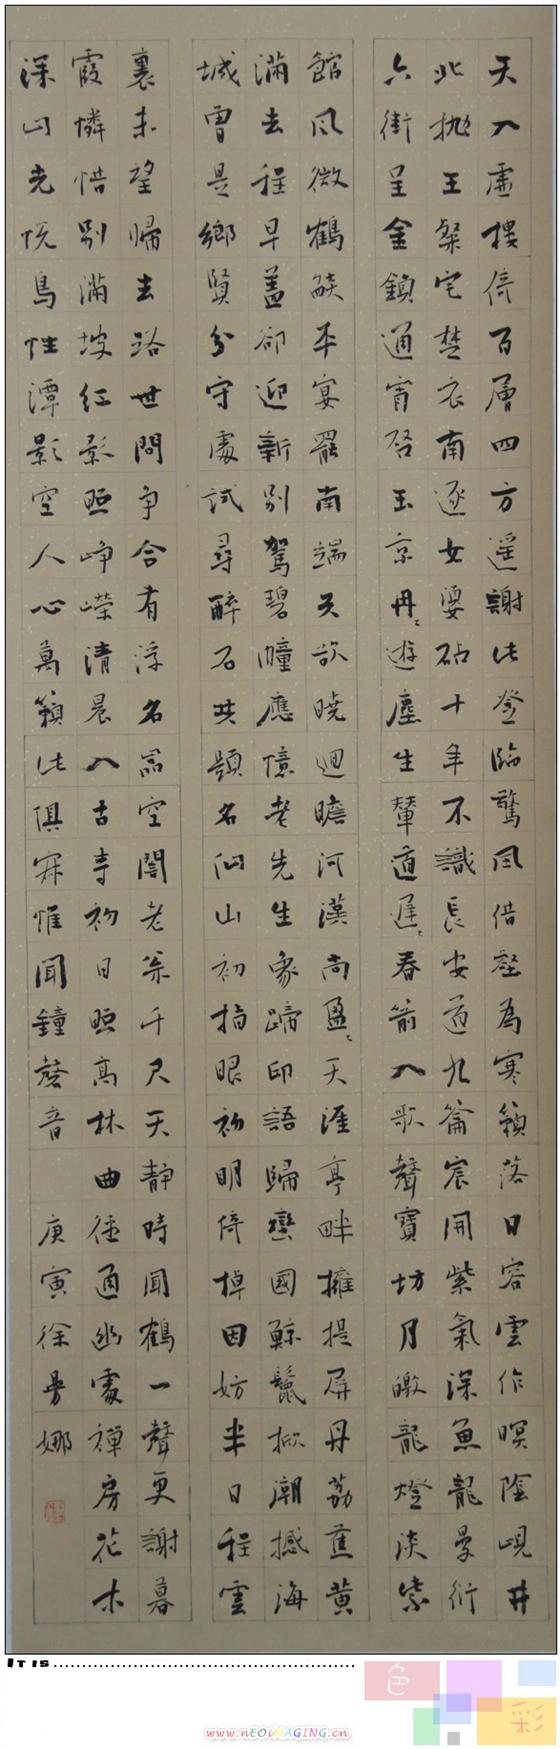 天入虛樓倚百層四方遥謝此登臨驚風借壑為寒籟落日容雲作暝陰峴井
北抛王粲宅楚衣南逐女嬃砧十年不識長安道九籥宸開紫氣深魚龍曼衍
六街呈金鎖通宵啓玉京冉々遊塵生輦道遲々春箭入歌聲寶坊月皦龍燈淡紫
館風微鶴燄平宴罷南端天欲曉迴瞻河漢尚盈々天涯亭畔擁提屏丹荔蕉黄
滿去程早蓋卻迎新別駕碧幢應憶老先生象蹄印語歸蠻國鯨鬣掀潮撼海
城曾是鄉賢分守處試尋醉石共題名仙山初指眼初明倚棹因妨半日程雲
裏未望歸去路世間争合有浮名嵩空闇老千尺天静時聞鶴一聲更謝暮
霞憐惜別滿坡紅影照崢嶸清晨入古寺初日照高林曲徑通幽處禪房花木
深山光悦鳥性潭影空人心萬籟此俱寂惟聞鐘磬音 庚寅徐曼娜
IT IS
色彩
www.nEOiMAGING.cn